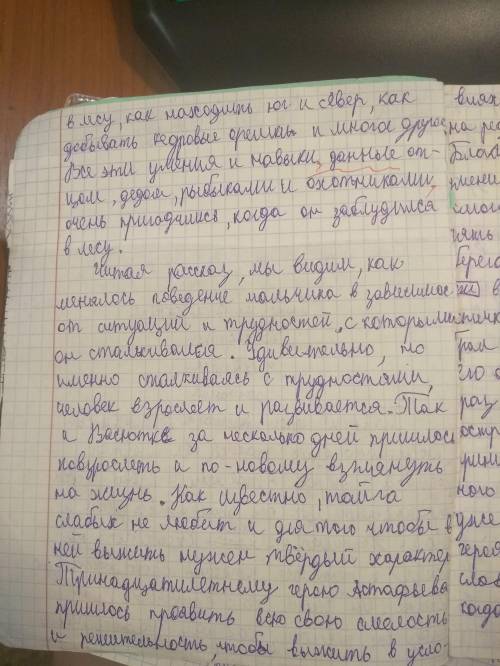 в лесу, как находить юг и север, как
добывать кедровые орешки и многое другое
Все эти умения и навыки, данные от-
цом, дедом, рыбаками и охотниками,
очень пригодились, когда он заблудился
в лесу.
Читая рассказ, мы видим, как
менялось поведение мальчика в зависимос
от ситуаций и трудностей, с которыми
он сталкивался. Удивительно, но
именно сталкиваясь с трудностями,
человек взрослеет и развивается. Так
и Васютке за несколько дней пришлось
повзрослеть и по-новому взглянуть
на жизнь. Как известно, тайга
слабых не любит и для того чтобы в
ней выжить нужен твёрдый характер
Тринадцатилетнему герою Астафьева
пришлось проявить всю свою смелость
и решительность, чтобы выжить в усло-
виях
на ре
Благ
умени
смог
пять
берега
в
его
раз
остр
ного
уже
героя
слаб
когда